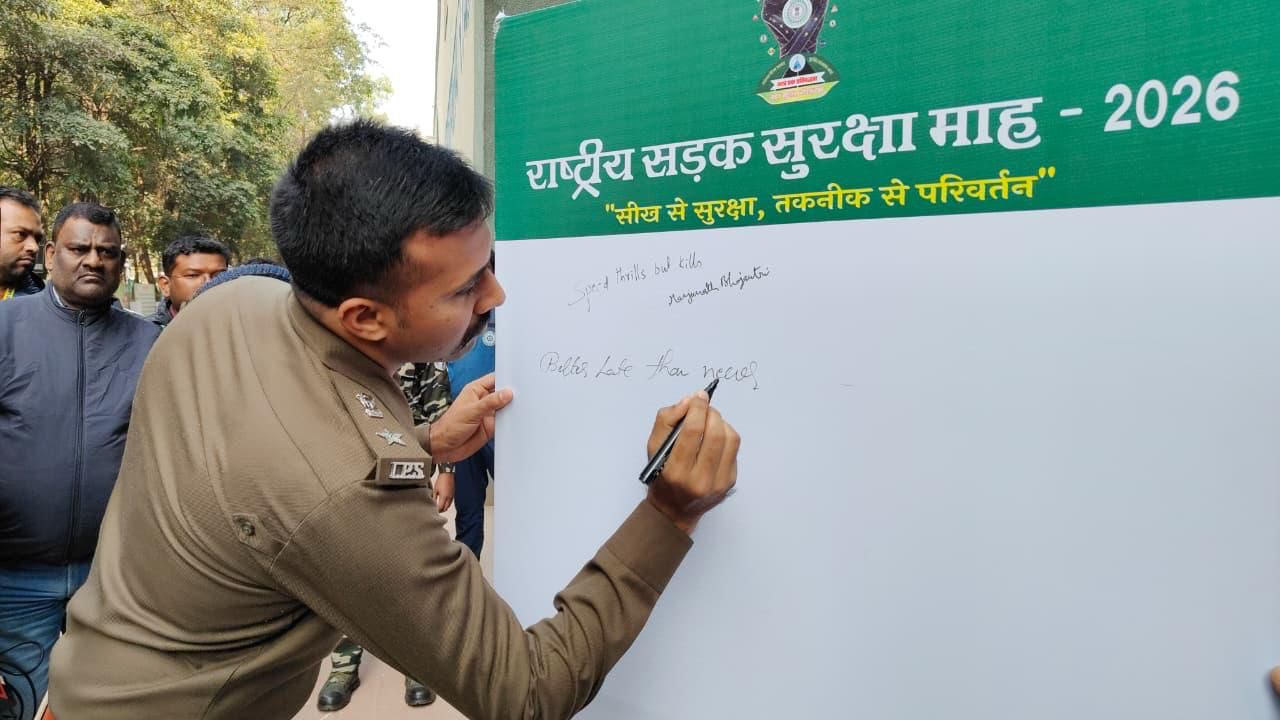 राष्ट्रीय सड़क सुरक्षा माह - 2026
"सीख से सुरक्षा, तकनीक से परिवर्तन"
Speed thrills but kills
Manjunath Bhajantri
Better Late than never
I.P.S.